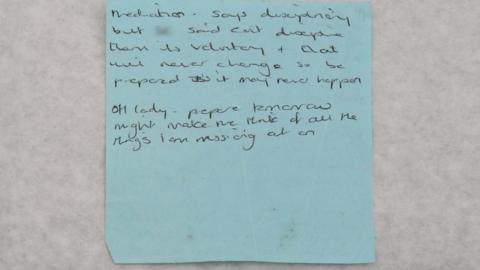 mediation - says disciplinary
but said can't discipline
them its voluntary + that
will never change so be
prepared it may never happen
OH lady - prepare tomorrow
might make me think of all the
things I am missing at on